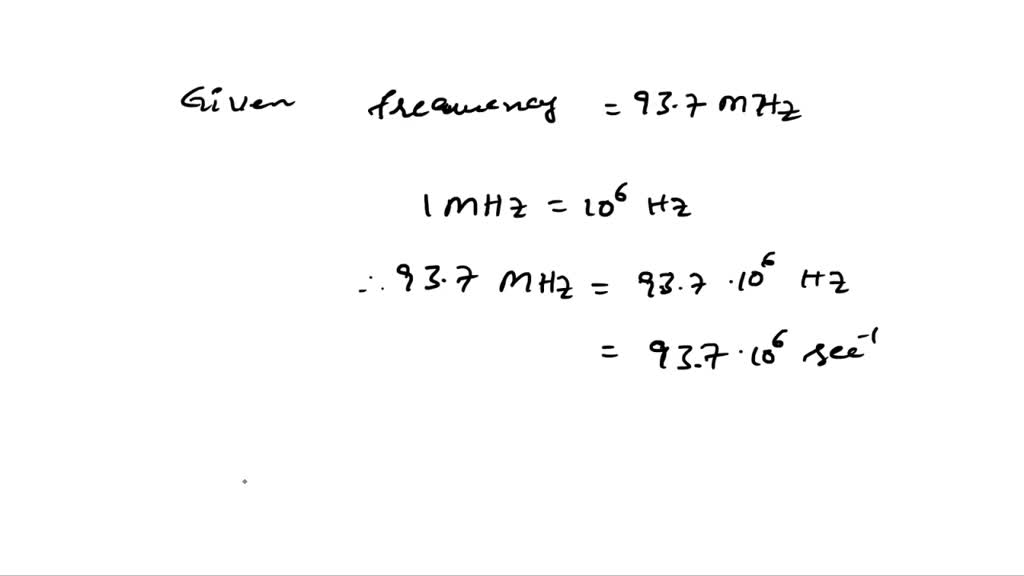 Given frequency = 93.7 MHz
1 MHz = 10⁶ Hz
∴ 93.7 MHz = 93.7 · 10⁶ Hz
= 93.7 · 10⁶ sec⁻¹